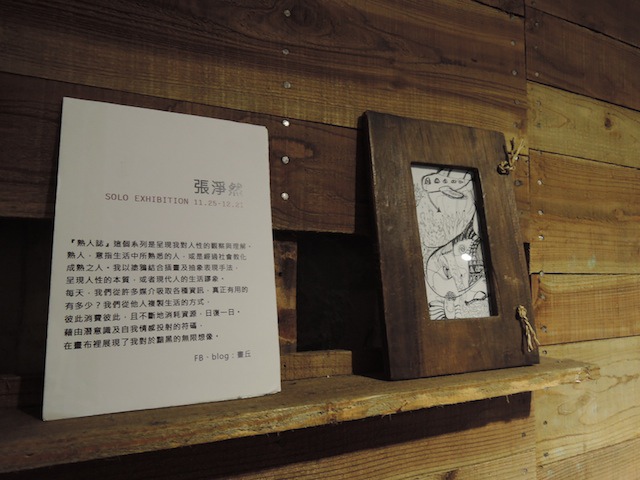 張淨然
SOLO EXHIBITION 11.25-12.31
『熟人誌』這個系列是呈現我對人性的觀察與理解。
熟人，意指生活中所熟悉的人，或是經過社會教化
成熟之人。我以塗鴉結合插畫及抽象表現手法，
呈現人性的本質，或者現代人的生活謬象。
每天，我們從許多媒介吸取各種資訊，真正有用的
有多少？我們從他人複製生活的方式，
彼此消費彼此，且不斷地消耗資源，日復一日。
藉由潛意識及自我情感投射的符碼，
在畫布裡展現了我對於黝黑的無限想像。
FB、blog：畫丘